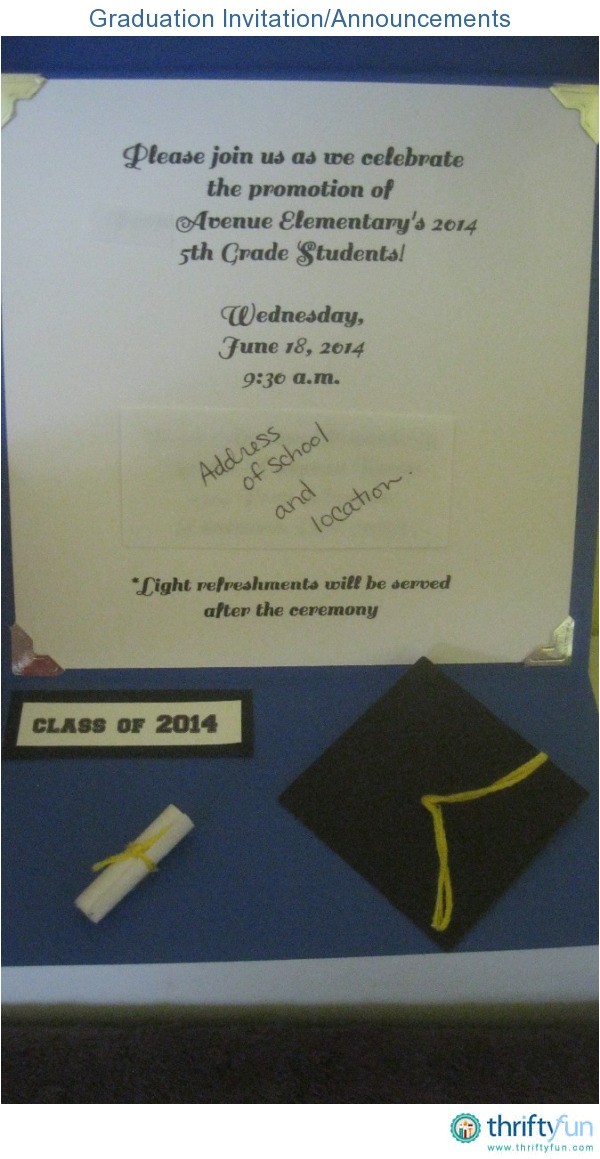 Graduation Invitation/Announcements
Please join us as we celebrate
the promotion of
Avenue Elementary's 2014
5th Grade Students!
Wednesday,
June 18, 2014
9:30 a.m.
Address
of school
and
location.
*Light refreshments will be served
after the ceremony
CLASS OF 2014
thriftyfun
www.thriftyfun.com